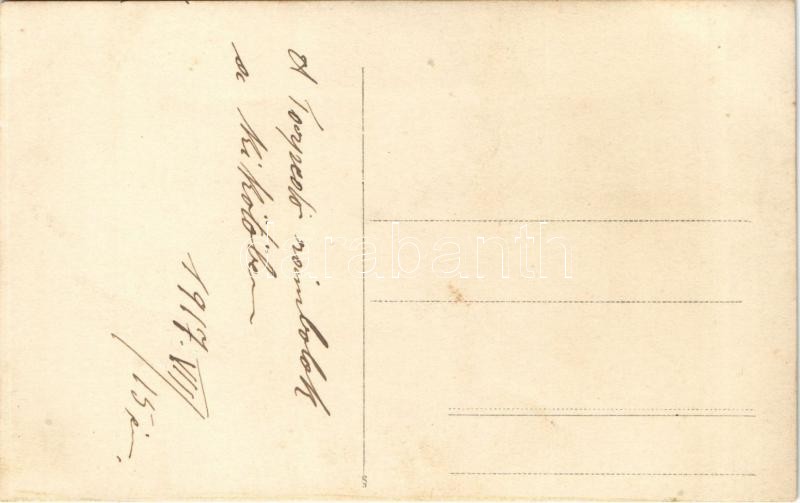 A Torpedó rombolok
a kikötőben
1917. VIII/
15-én.
Darabanth